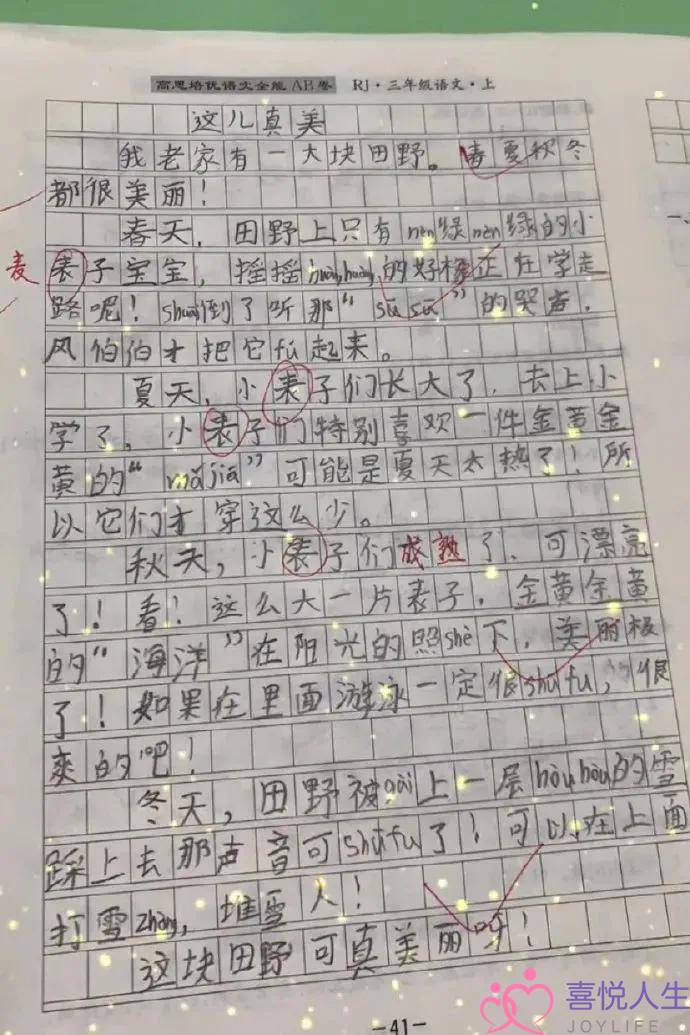 高思培优语文全能AB卷 RJ·三年级语文·上
这儿真美
我老家有一大块田野。春夏秋冬
都很美丽！
春天，田野上只有nèn绿nèn绿的小
麦
表子宝宝，摇摇huànghuàng的好极正在学走
路呢！shuāi倒了听那“sū sū”的哭声，
风伯伯才把它fú起来。
夏天，小表子们长大了，去上小
学了，小表子们特别喜欢一件金黄金
黄的“mǎjiǎ”可能是夏天太热了！所
以它们才穿这么少。
秋天，小表子们成熟了，可漂亮
了！看！这么大一片表子，金黄金黄
的“海洋”在阳光的照shè下，美丽极
了！如果在里面游泳一定很shūfu，很
爽的吧！
冬天，田野被gài上一层hòuhòu的雪
踩上去那声音可shūfu了！可以在上面
打雪zhàng，堆雪人！
这块田野可真美丽呀！
—41—
喜悦人生
JOYLIFE